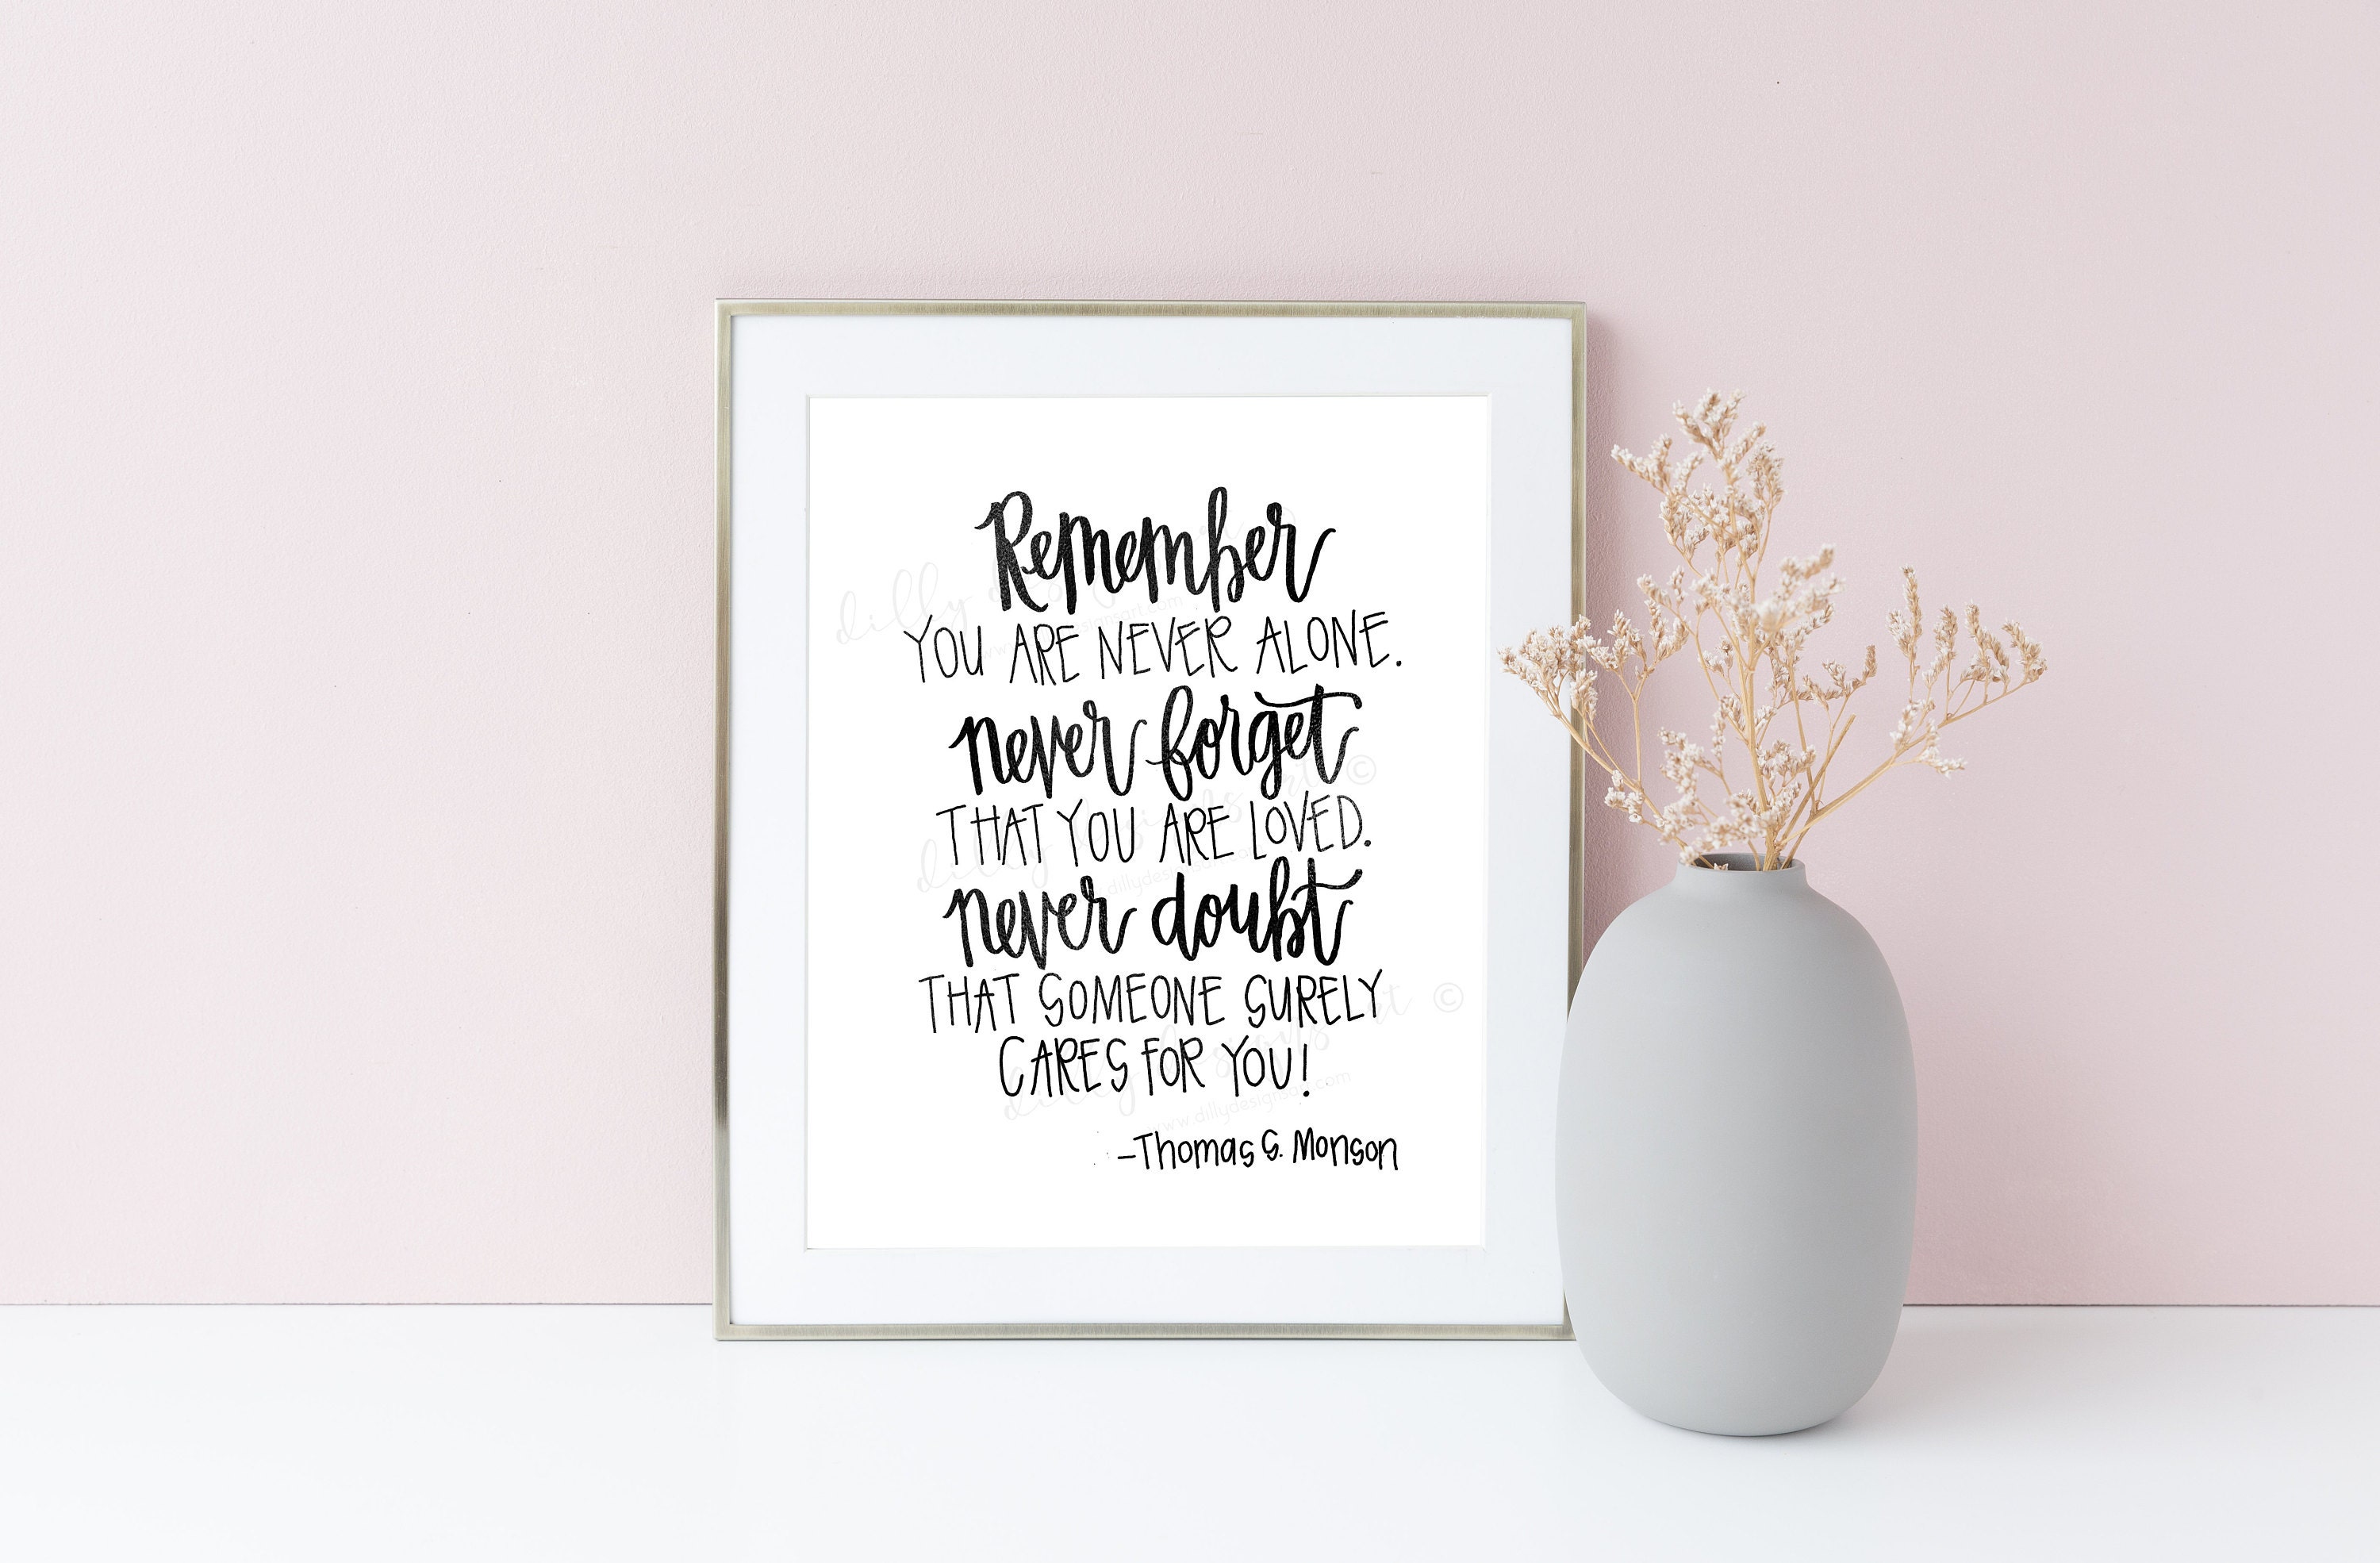 Remember
YOU ARE NEVER ALONE.
never forget
THAT YOU ARE LOVED.
never doubt
THAT SOMEONE SURELY
CARES FOR YOU!
-Thomas S. Monson
dilly designs art ©
www.dillydesignsart.com